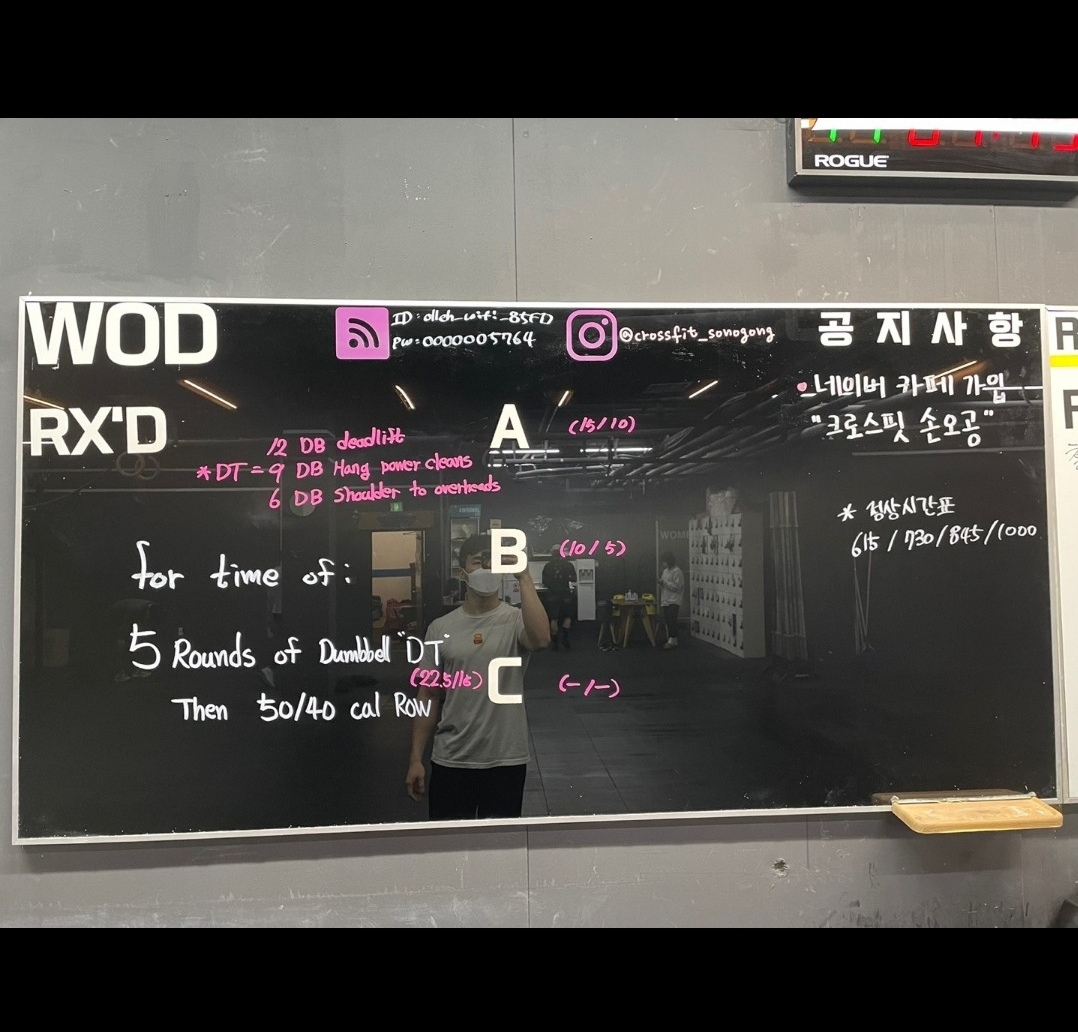 ROGUE
WOD
ID: olleh_wifi_B5FD
PW: 0000005764
@crossfit_sonogong
공지사항
• 네이버 카페 가입
"크로스핏 손오공"
RX'D
12 DB deadlift
*DT = 9 DB Hang power cleans
6 DB Shoulder to overheads
A (15/10)
* 정상시간표
615 / 730 / 845 / 1000
B (10/5)
for time of:
5 Rounds of Dumbbell "DT"
(22.5/15)
C (-/-)
Then 50/40 cal Row
R
F